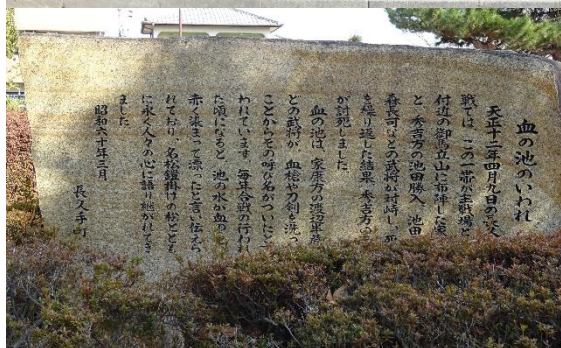 血の池のいわれ
天正十二年四月九日の長久
戦では、この一帯が主戦場と
付近の御馬立山に布陣した家
と、秀吉方の池田勝入、池田
森長可などの武将が対峙し、死
を繰り返した結果、秀吉方の三
が討死しました。
血の池は、家康方の渡辺半蔵
どの武将が、血槍や刀剣を洗っ
ことからその呼び名がついたと
われています。毎年合戦の行われ
た頃になると、池の水が血の
赤く染まって漂ったと言い伝えら
れており、名松鎧掛けの松ととも
に永く人々の心に語り継がれてき
ました。
昭和六十年三月
長久手町